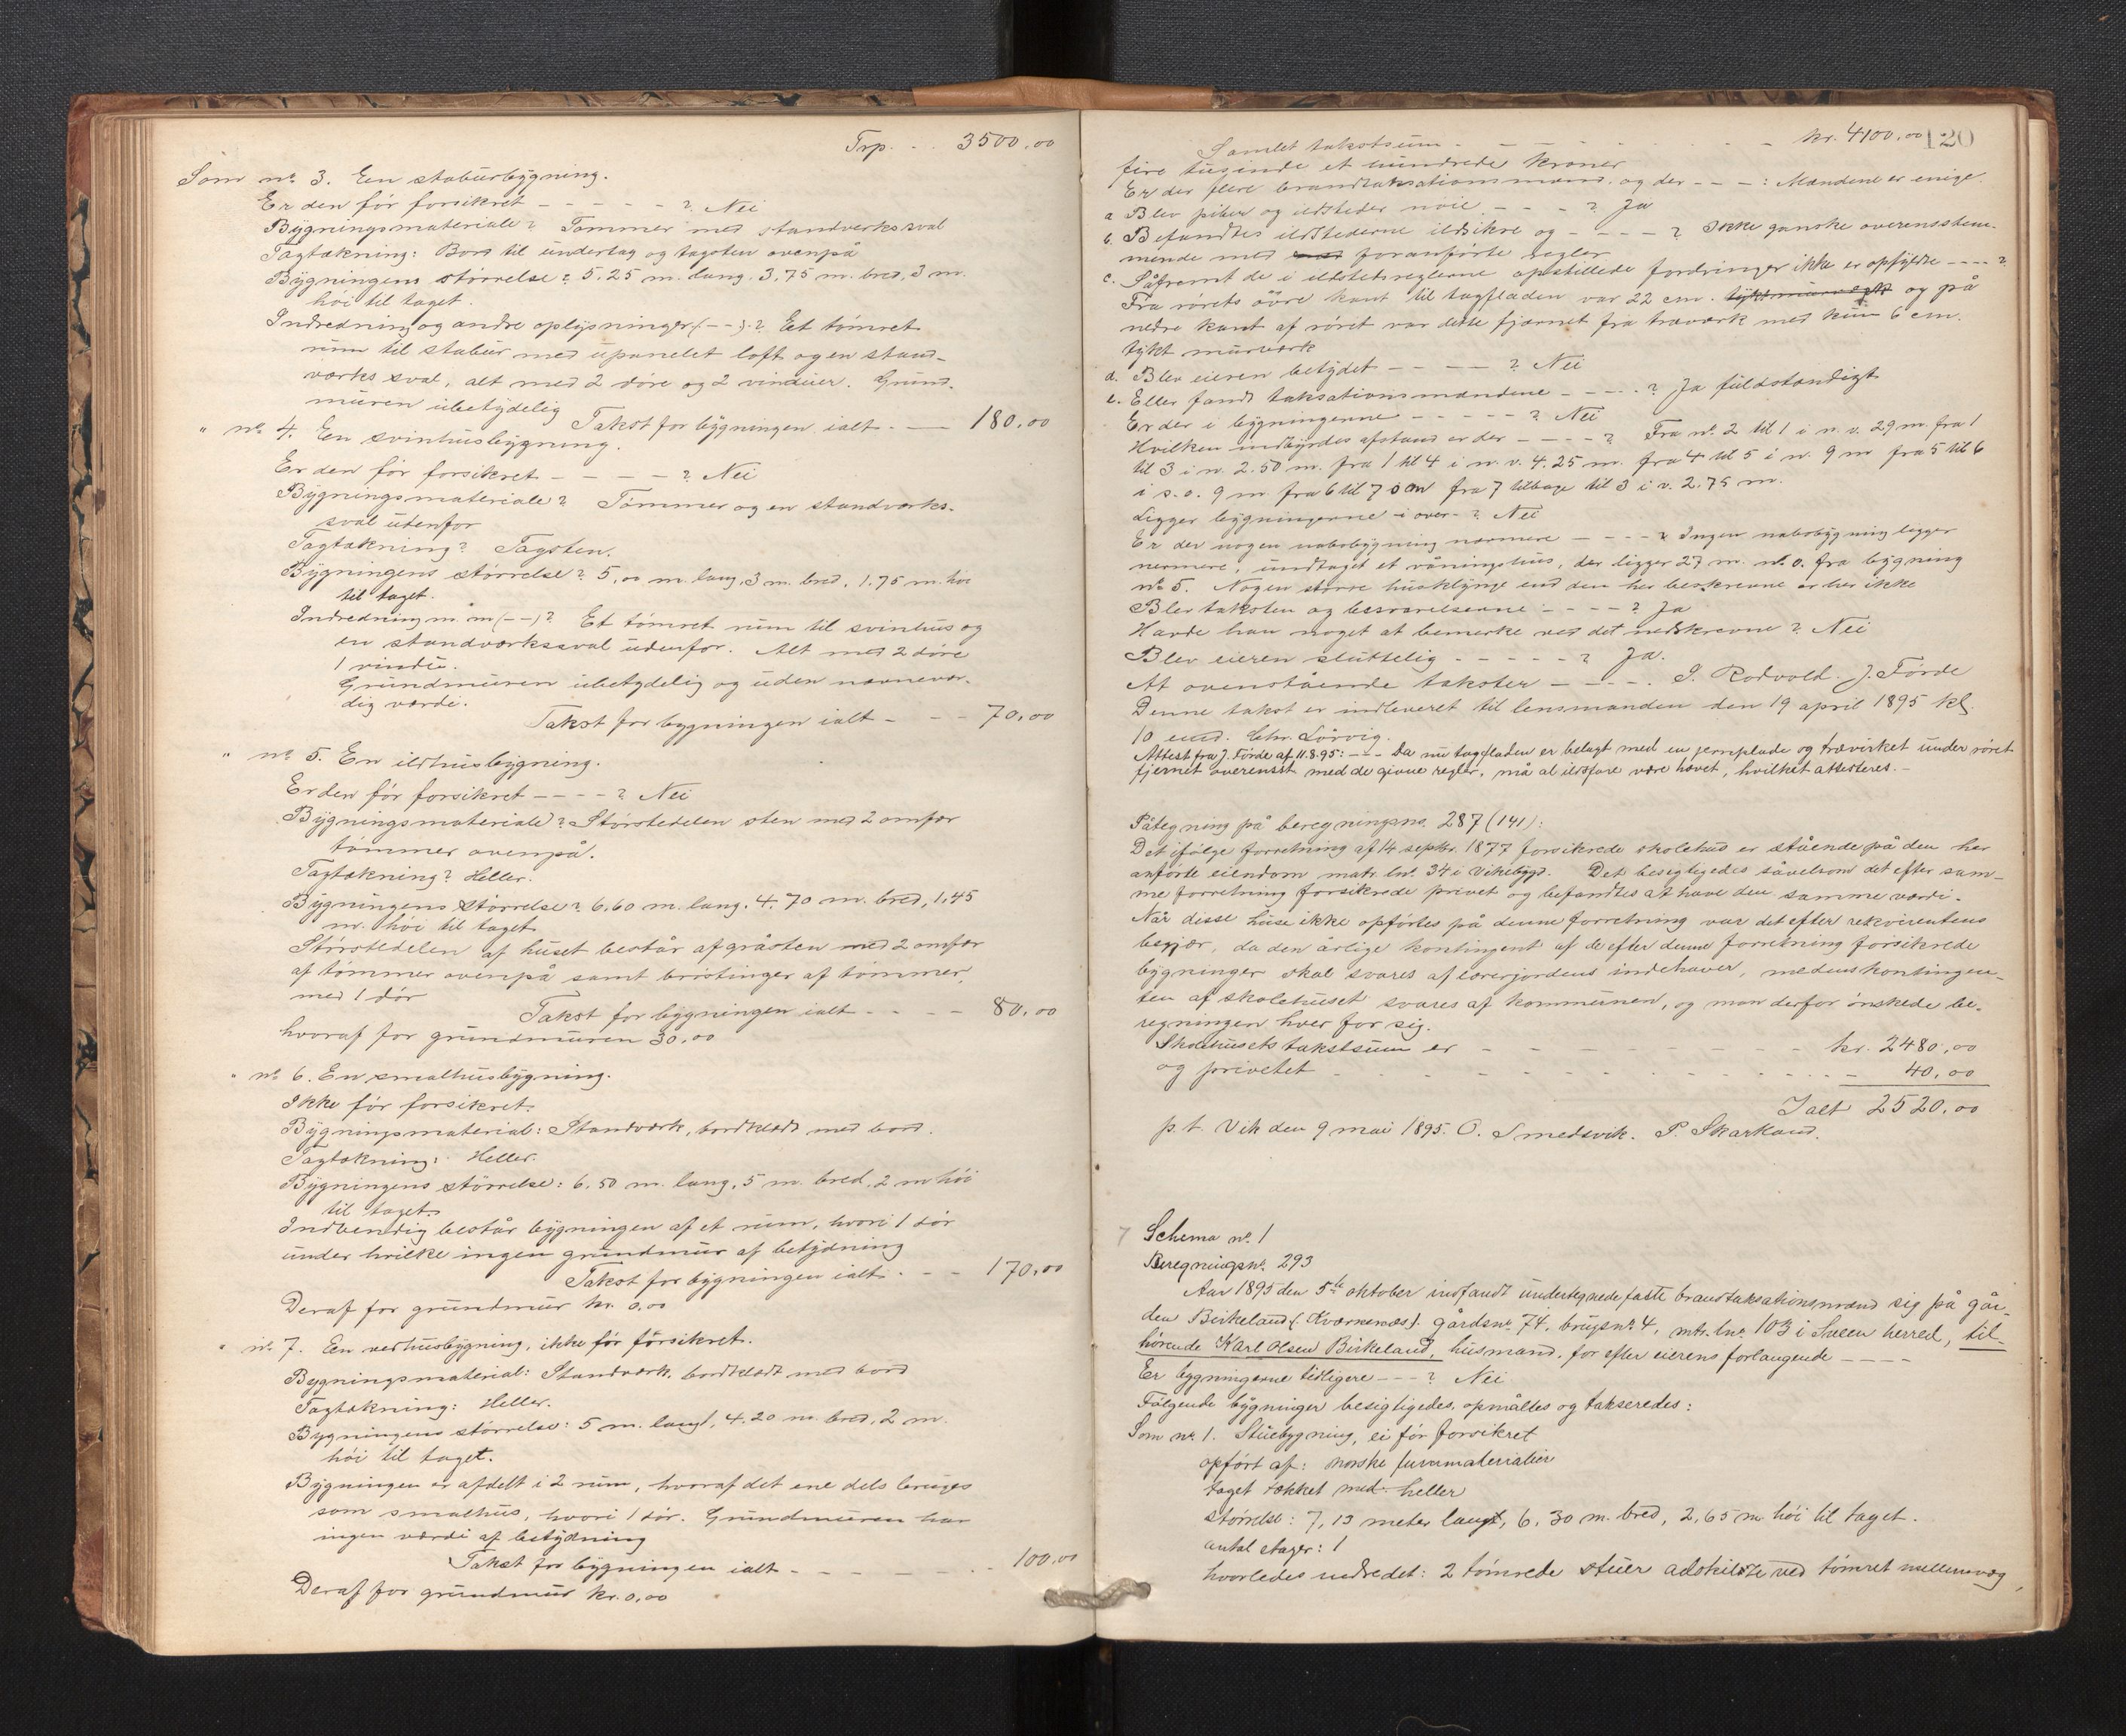 Trp. . . 3500,00
Som nº 3. Een stabursbygning.
Er den før forsikret - - - - - ? Nei
Bygningsmateriale? Tømmer med standverkssval
Tagtækning: Bord til undertag og tagsten ovenpå
Bygningens størrelse? 5.25 m. lang. 3,75 m. bred, 3 m.
höi til taget.
Indredning og andre oplysninger (--)? Eet tømret
rum til stabur med upanelet loft og en stand-
værks sval, alt med 2 døre og 2 vinduer. Grund-
muren ubetydelig
Takst for bygningen ialt - — 180,00
" nº 4. En svinhusbygning.
Er den før forsikret - - - - ? Nei
Bygningsmateriale? Tømmer og en standværks-
sval utenfor
Tagtækning? Tagsten.
Bygningens størrelse? 5,00 m. lang, 3 m. bred, 1.75 m. höi
til taget.
Indredning m. m (--)? Et tømret rum til svinhus og
en standværkssval udenfor. Alt med 2 döre
1 vindu.
Grundmuren ubetydelig og uden nævnevær-
dig værdi.
Takst for bygningen ialt - - - 70,00
" nº 5. En ildhusbygning.
Er den før forsikret - - - - ? Nei
Bygningsmateriale? Størstedelen sten med 2 omfar
tømmer ovenpå.
Tagtækning? Heller.
Bygningens størrelse? 6,60 m. lang. 4,70 m. bred, 1,45
m. höi til taget
Størstedelen af huset består af gråsten med 2 omfar
af tømmer ovenpå samt brostinger af tømmer,
med 1 dör
Takst for bygningen ialt - - - - 80,00
hvoraf for grundmuren 30,00
" nº 6. En smalhusbygning.
Ikke før forsikret.
Bygningsmaterial: Standværk, bordklædt med bord.
Tagtækning: Heller.
Bygningens størrelse: 6,50 m. lang, 5 m. bred, 2 m höi
til taget.
Indvendig består bygningen af et rum, hvori 1 dör
under hvilke ingen grundmur af betydning
Takst for bygningen ialt - - - 170,00
Deraf for grundmur kr. 0,00
" nº 7. Een vedhusbygning, ikke før forsikret.
Bygningsmaterial: Standværk, bordklædt med bord
Tagtækning: Heller.
Bygningens størrelse: 5 m. langt, 4,20 m. bred, 2 m.
höi til taget.
Bygningen er afdelt i 2 rum, hvoraf det ene dels bruges
som smalhus, hvori 1 dör. Grundmuren har
ingen værdi af betydning
Takst for bygningen ialt - - - - - - 100,00
Deraf for grundmur kr. 0,00
120
Samlet takstsum - - - - - - - - kr. 4100,00
fire tusinde et hundrede kroner
Er der flere brandtaksationsmænd. og der - - - : Mændene er enige
a Blev piber og ildsteder nöie - - - ? Ja
b. Befandtes ildstederne ildsikre og - - - - ? Ikke ganske overensstem-
mende med foranførte regler
c. Såfremt de i ildstedsreglerne opstillede fordringer ikke er opfyldte - - - - ?
Fra rörets övre kant til tagfladen var 22 cm. tykt murværk og på
nedre kant af röret var dette fjærnet fra træværk med kun 6 cm.
tykt murværk
d. Blev eieren betydet - - - - ? Nei
e. Eller fandt taksationsmændene - - - - ? Ja fuldstændigt
Er der i bygningerne - - - - - ? Nei
Hvilken indbyrdes afstand er der - - - - ? Fra nº. 2 til 1 i n. v. 29 m. fra 1
til 3 i n. 2.50 m. fra 1 til 4 i n. v. 4.25 m. fra 4 til 5 i n. 9 m fra 5 til 6
i s. o. 9 m. fra 6 til 7 0 m fra 7 tilbage til 3 i v. 2.75 m.
Ligger bygningerne i over- ? Nei
Er der nogen nabobygning nærmere - - - - ? Ingen nabobygning ligger
nærmere, undtaget et våningshus, der ligger 27 m. n. o. fra bygning
nº 5. Nogen større husklynge end den her beskrevne er her ikke
Blev taksten og besvarelserne - - - - ? Ja
Havde han noget at bemærke ved det nedskrevne? Nei
Blev eieren sluttelig - - - - - ? Ja.
At ovenstående takster - - - - . S. Rødvold. J. Førde
Denne takst er indleveret til lensmanden den 19 april 1895 kl.
10 em. Chr. Lörvig.
Attest fra J. Førde af 11.8.95: - - - Da nu tagfladen er belagt med en jernplade og trævirket under röret
fjernet overensst. med de givne regler, må al ildsfare være hævet, hvilket attesteres. -
Påtegning på beregningsno. 287 (141):
Det ifølge forretning af 14 septbr. 1877 forsikrede skolehus er stående på den her
anførte eiendom matr. lnº. 34 i Vikebygd. Det besigtigedes såvelsom det efter sam-
me forretning forsikrede privet og befandtes at have den samme værdi.
Når disse huse ikke opførtes på denne forretning var det efter rekvirentens
begjær, da den årlige kontingent af de efter denne forretning forsikrede
bygninger skal svares af lærerjordens indehaver, medens kontingen-
ten af skolehuset svares af kommunen, og man derfor ønskede be-
regningen hver for sig.
Skolehusets takstsum er - - - - - - - - - kr. 2480,00
og privetet - - - - - - - - - - - - 40,00
Ialt 2520,00
p. t. Vik den 9 mai 1895. O. Smedsvik. P. Skartland.
Schema nº. 1
Beregningsnº. 293
Aar 1895 den 5te oktober indfandt undertegnede faste brandtaksationsmænd sig på går-
den Birkeland (Kværnenæs). gårdsnº. 74, brugsnº. 4, mtr. lnº. 103 i Sveen herred, til-
hørende Karl Olsen Birkeland, husmand, for efter eierens forlangende - - - -
Er bygningerne tidligere - - - ? Nei
Følgende bygninger besigtigedes, opmåltes og takseredes:
Som nº. 1. Stuebygning, ei før forsikret
opført af: norske furumaterialier
taget tækket med: heller
størrelse: 7,13 meter langt, 6,30 m. bred, 2,65 m. höi til taget.
antal etager: 1
hvorledes indredet: 2 tømrede stuer adskilte ved tømret mellemvæg,